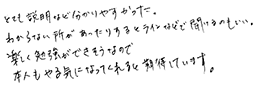 とても説明など分かりやすかった。
わからない所があったりするとラインなどで聞けるのもいい。
楽しく勉強ができそうなので
本人もやる気になってくれると期待しています。